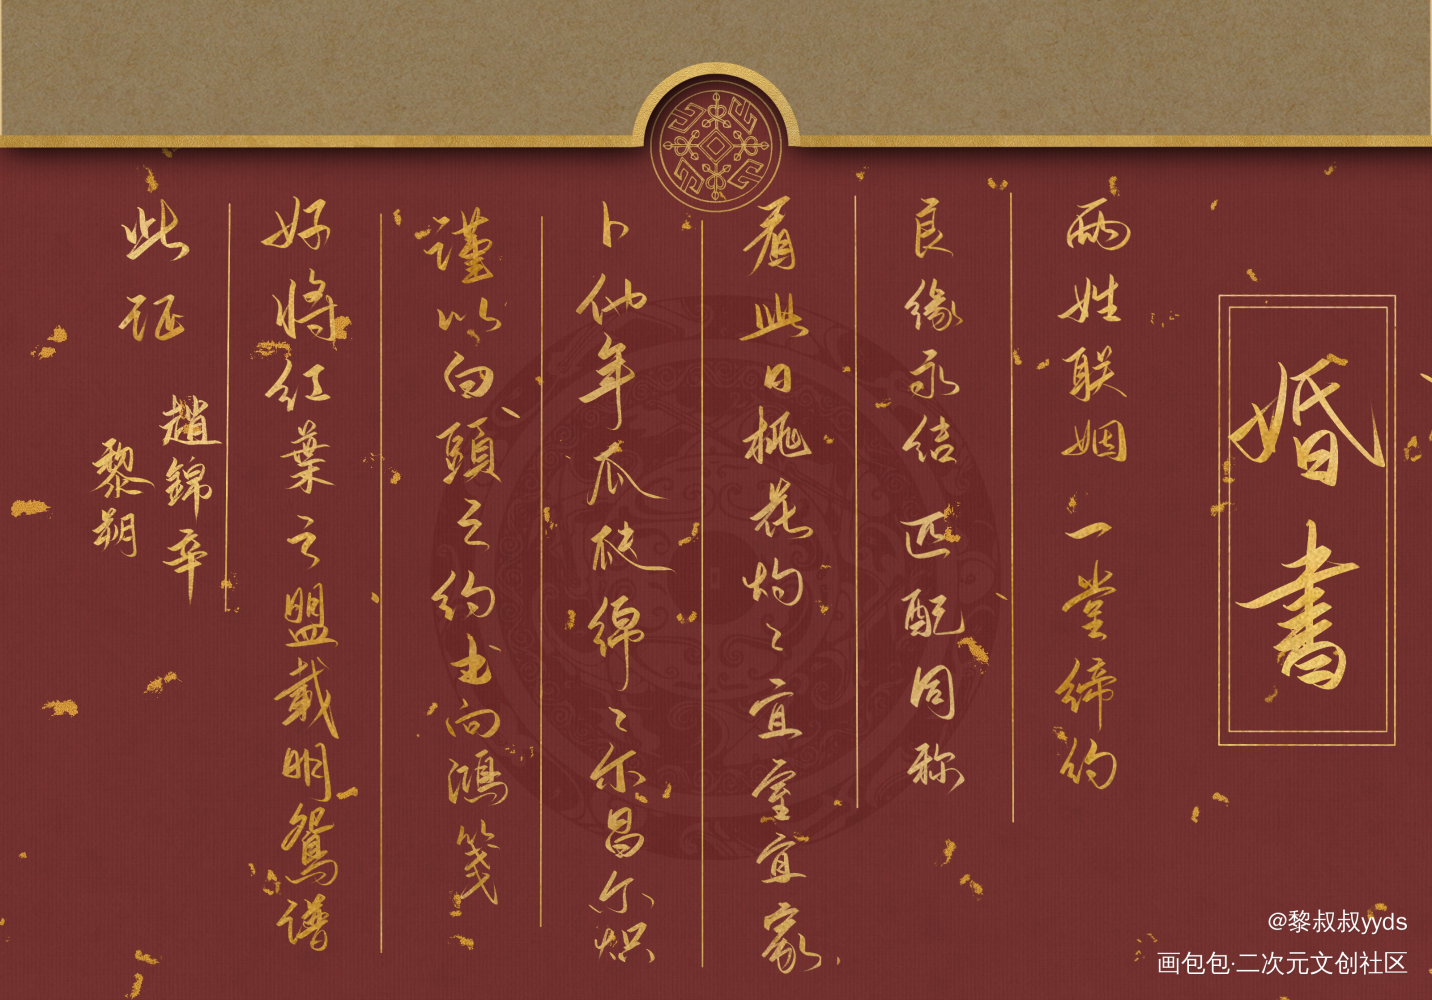 婚書
兩姓联姻一堂缔约
良缘永结匹配同称
看此日桃花灼灼宜室宜家
卜他年瓜瓞绵绵尔昌尔炽
謹以白頭之约书向鴻箋
好將红葉之盟载明鴛谱
此证
趙錦辛
黎朔
@黎叔叔yyds
画包包·二次元文创社区